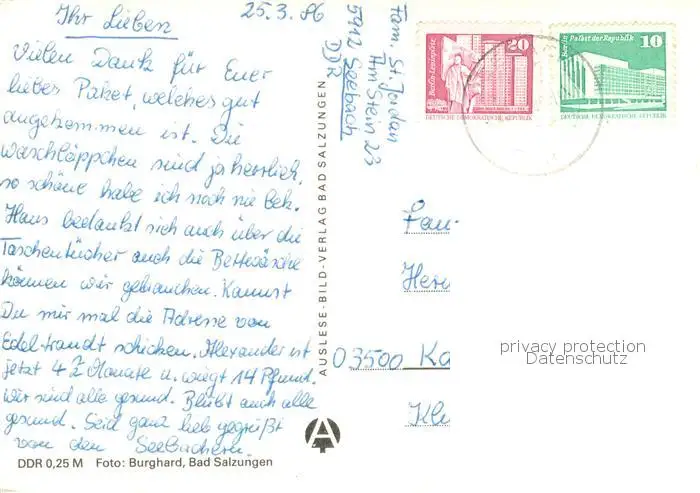 Ihr Lieben
25.3.86
Vielen Dank für Euer
liebes Paket, welches gut
angekommen ist. Die
Waschläppchen sind ja herrlich,
so schöne habe ich noch nie bek.
Hans bedankt sich auch über die
Taschentücher auch die Bettwäsche
können wir gebrauchen. Kannst
Du mir mal die Adresse von
Edeltraudt schicken. Alexander ist
jetzt 4 1/2 Monate u. wiegt 14 Pfund.
Wir sind alle gesund. Bleibt auch alle
gesund. Seid ganz lieb gegrüßt
von den Seebachern.
DDR 0,25 M Foto: Burghard, Bad Salzungen
AUSLESE-BILD-VERLAG BAD SALZUNGEN
Fam. St. Jordan
Am Stein 23
5912 Seebach
DDR
Berlin-Leninplatz
20
DEUTSCHE DEMOKRATISCHE REPUBLIK
Berlin, Palast der Republik
10
DEUTSCHE DEMOKRATISCHE REPUBLIK
Fam
Her
03500 Ka
Kl
privacy protection
Datenschutz